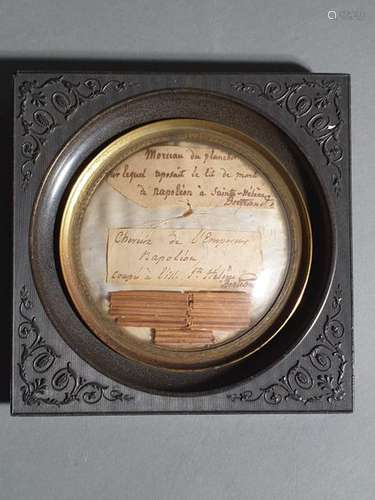 Morceau du plancher
sur lequel reposait le lit de mort
de napoléon à Sainte-Hélène
Bertrand
Cheveux de l'Empereur
Napoléon
coupé à l'Ile Ste Hélène
Bertrand